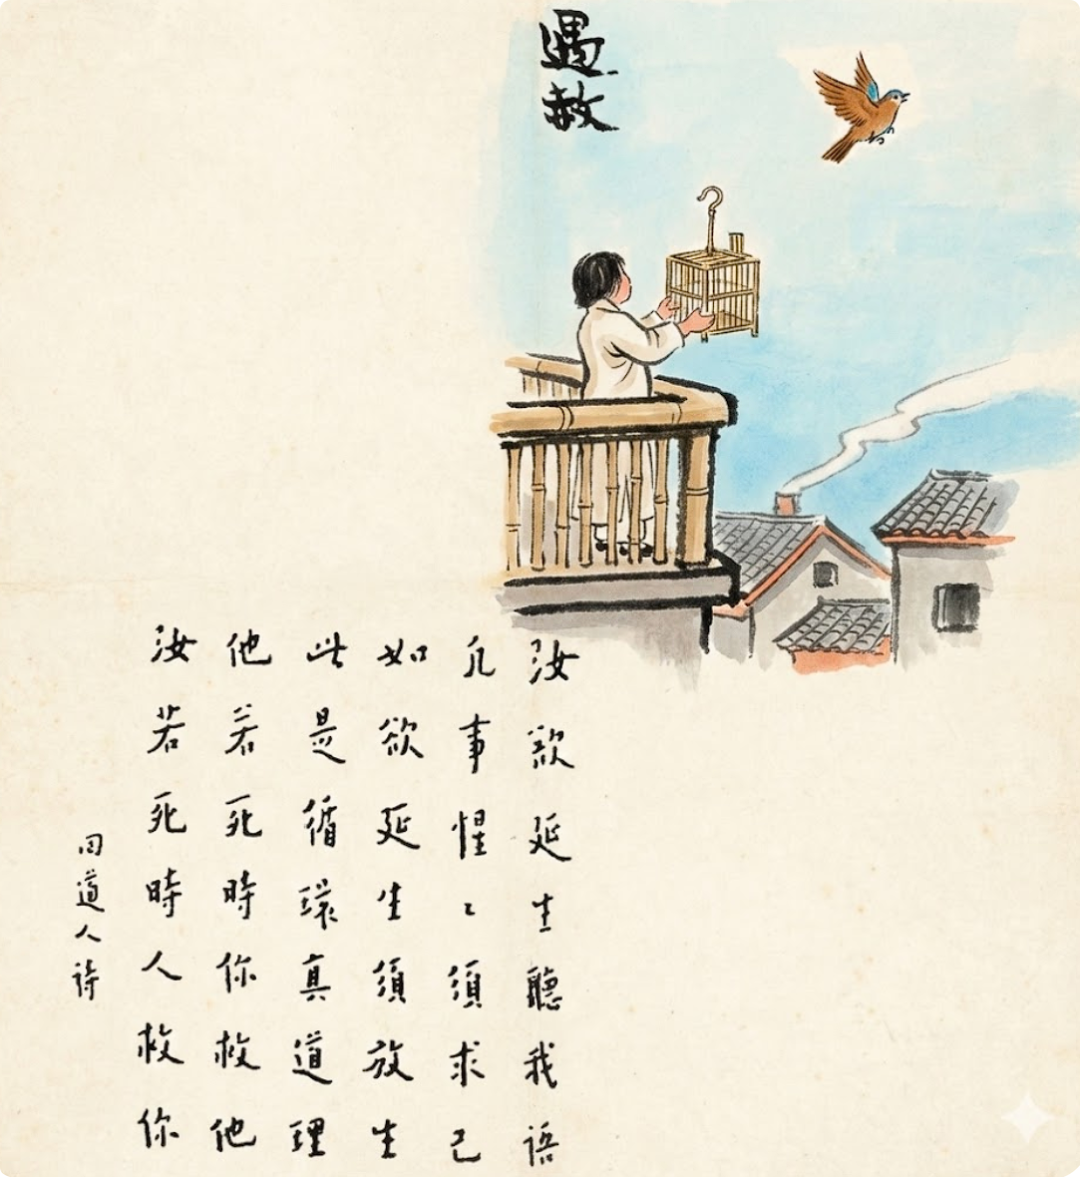 遇赦
汝欲延生聽我語
凡事惺〻須求己
如欲延生須放生
此是循環真道理
他若死時你救他
汝若死時人救你
回道人詩